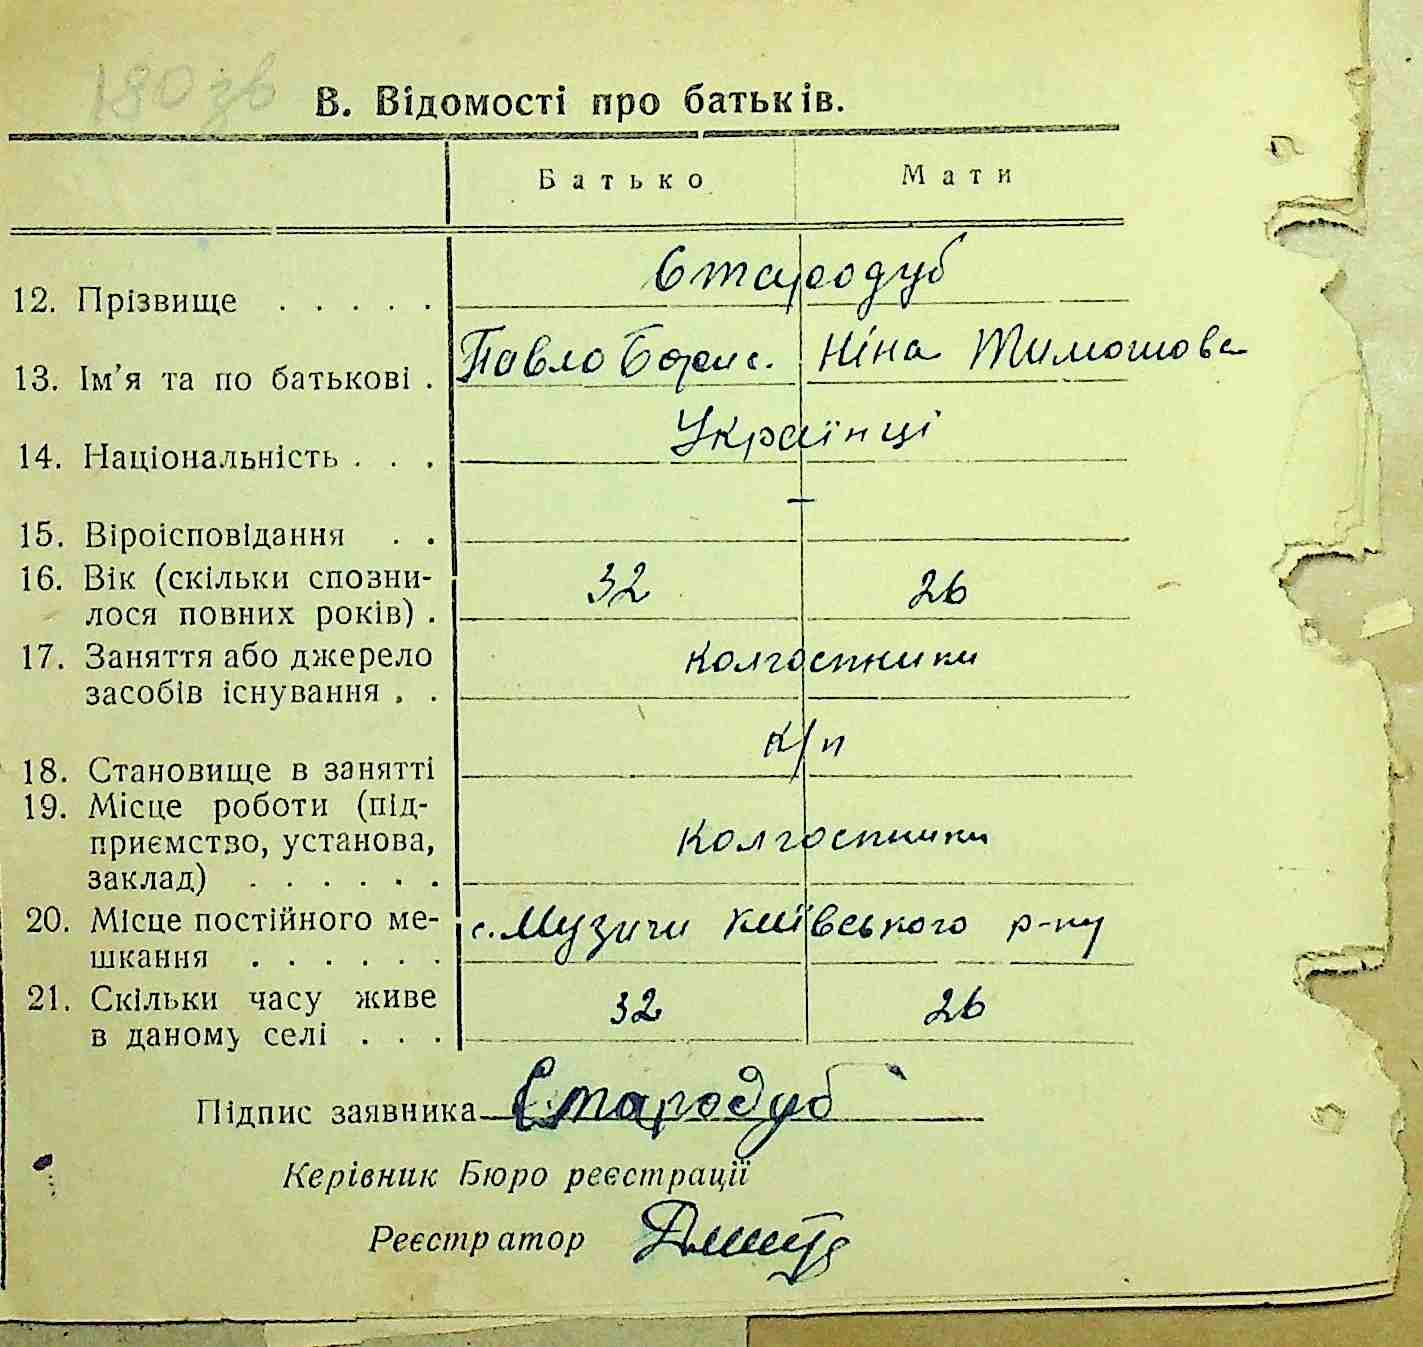 180 зв
В. Відомості про батьків.
Батько Мати
12. Прізвище . . . . . Стародуб
13. Ім'я та по батькові . Павло Борис. Ніна Тимошова
14. Національність . . . Українці
15. Віроісповідання . . –
16. Вік (скільки спозни-
лося повних років) . 32 26
17. Заняття або джерело
засобів існування . . колгоспники
18. Становище в занятті к/п
19. Місце роботи (під-
приємство, установа,
заклад) . . . . . . колгоспники
20. Місце постійного ме-
шкання . . . . . . с. Музичи Київського р-ну
21. Скільки часу живе
в даному селі . . . 32 26
Підпис заявника Стародуб
Керівник Бюро реєстрації
Реєстратор